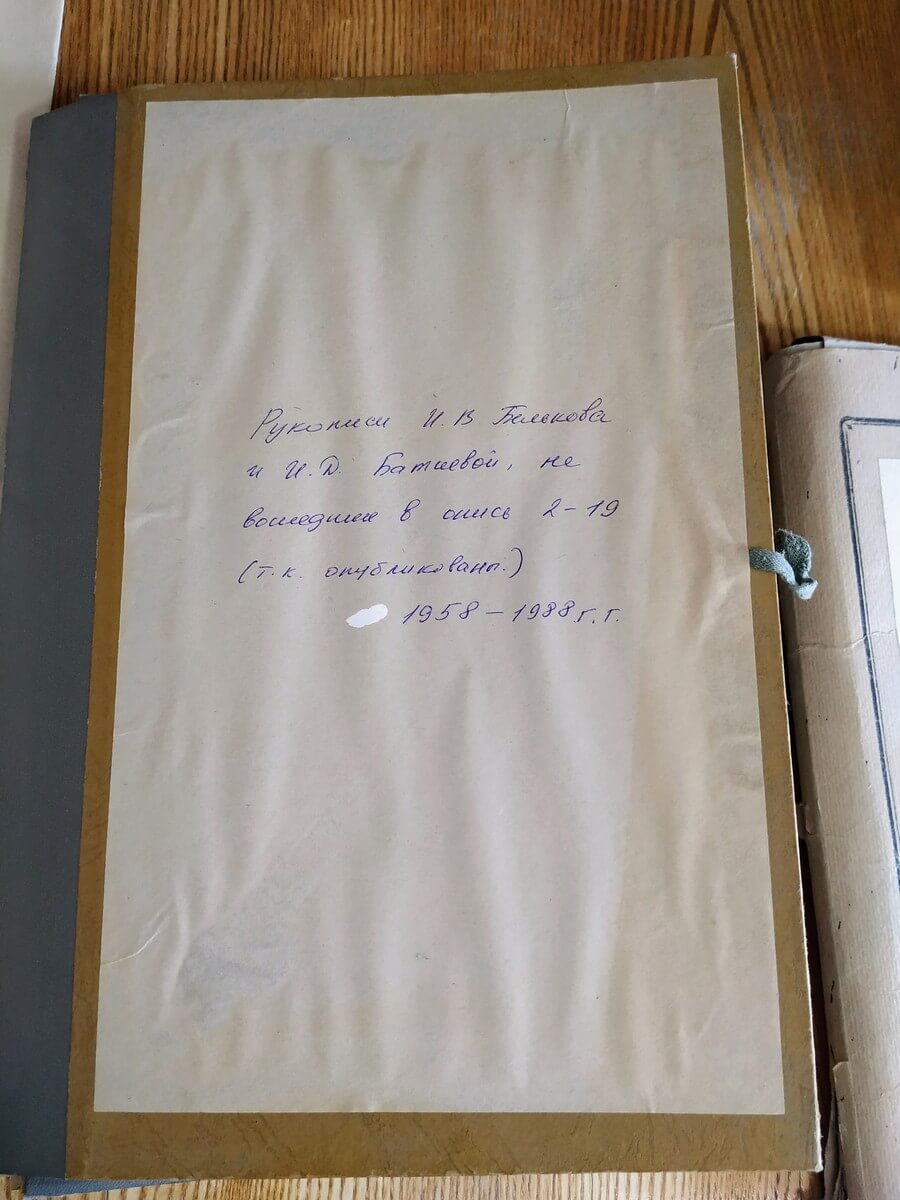 Рукописи И.В Белькова
и И.Д. Батиевой, не
вошедшие в опись 2-19
(т.к. опубликованы.)
1958 – 1988 г.г.